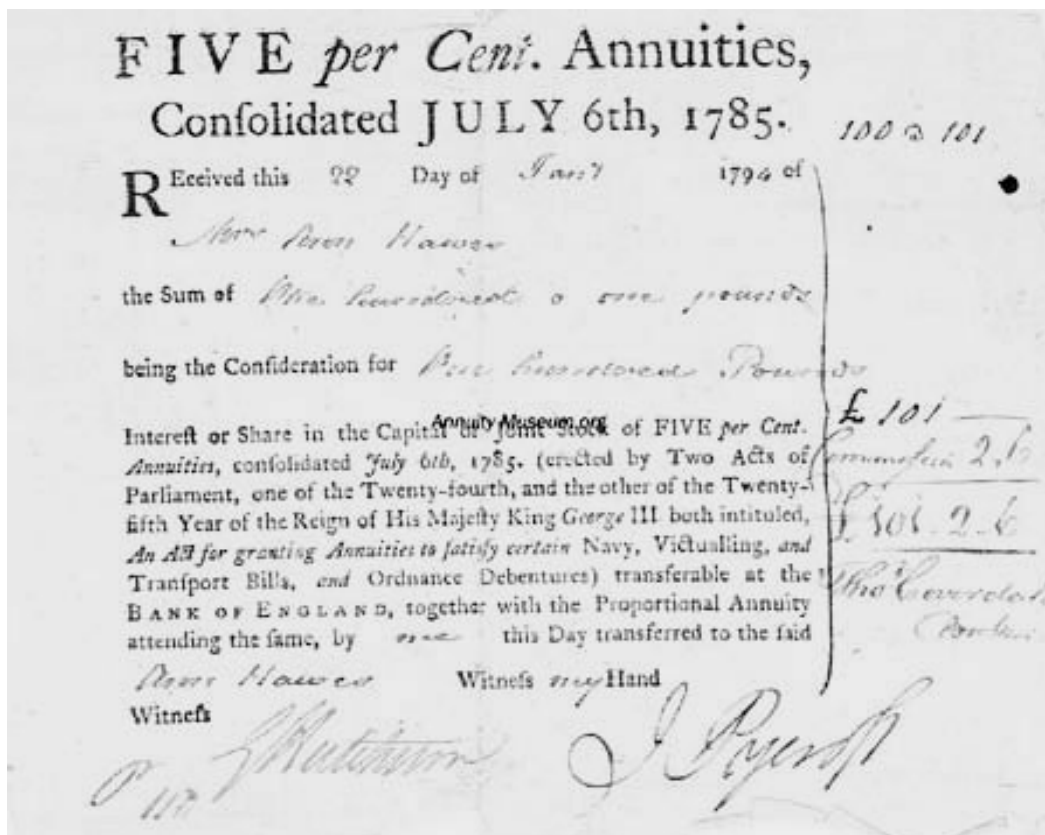 FIVE per Cent. Annuities,
Conſolidated JULY 6th, 1785.
100 a 101
REceived this 22 Day of Jany 1794 of
Mrs Ann Hawes
the Sum of One hundred & one pounds
being the Conſideration for One hundred Pounds
Annuity Museum.org
£ 101
Intereſt or Share in the Capital or Joint Stock of FIVE per Cent.
Annuities, conſolidated July 6th, 1785. (erected by Two Acts of
Commiſsion 2.6
Parliament, one of the Twenty-fourth, and the other of the Twenty-
fifth Year of the Reign of His Majeſty King George III both intituled,
£ 101-2-6
An Act for granting Annuities to ſatisfy certain Navy, Victualling, and
Tranſport Bills, and Ordnance Debentures) transferable at the
Thos Coverdale
BANK OF ENGLAND, together with the Proportional Annuity
attending the ſame, by me this Day transferred to the ſaid
Ann Hawes Witneſs my Hand
Witneſs
J Rycroft